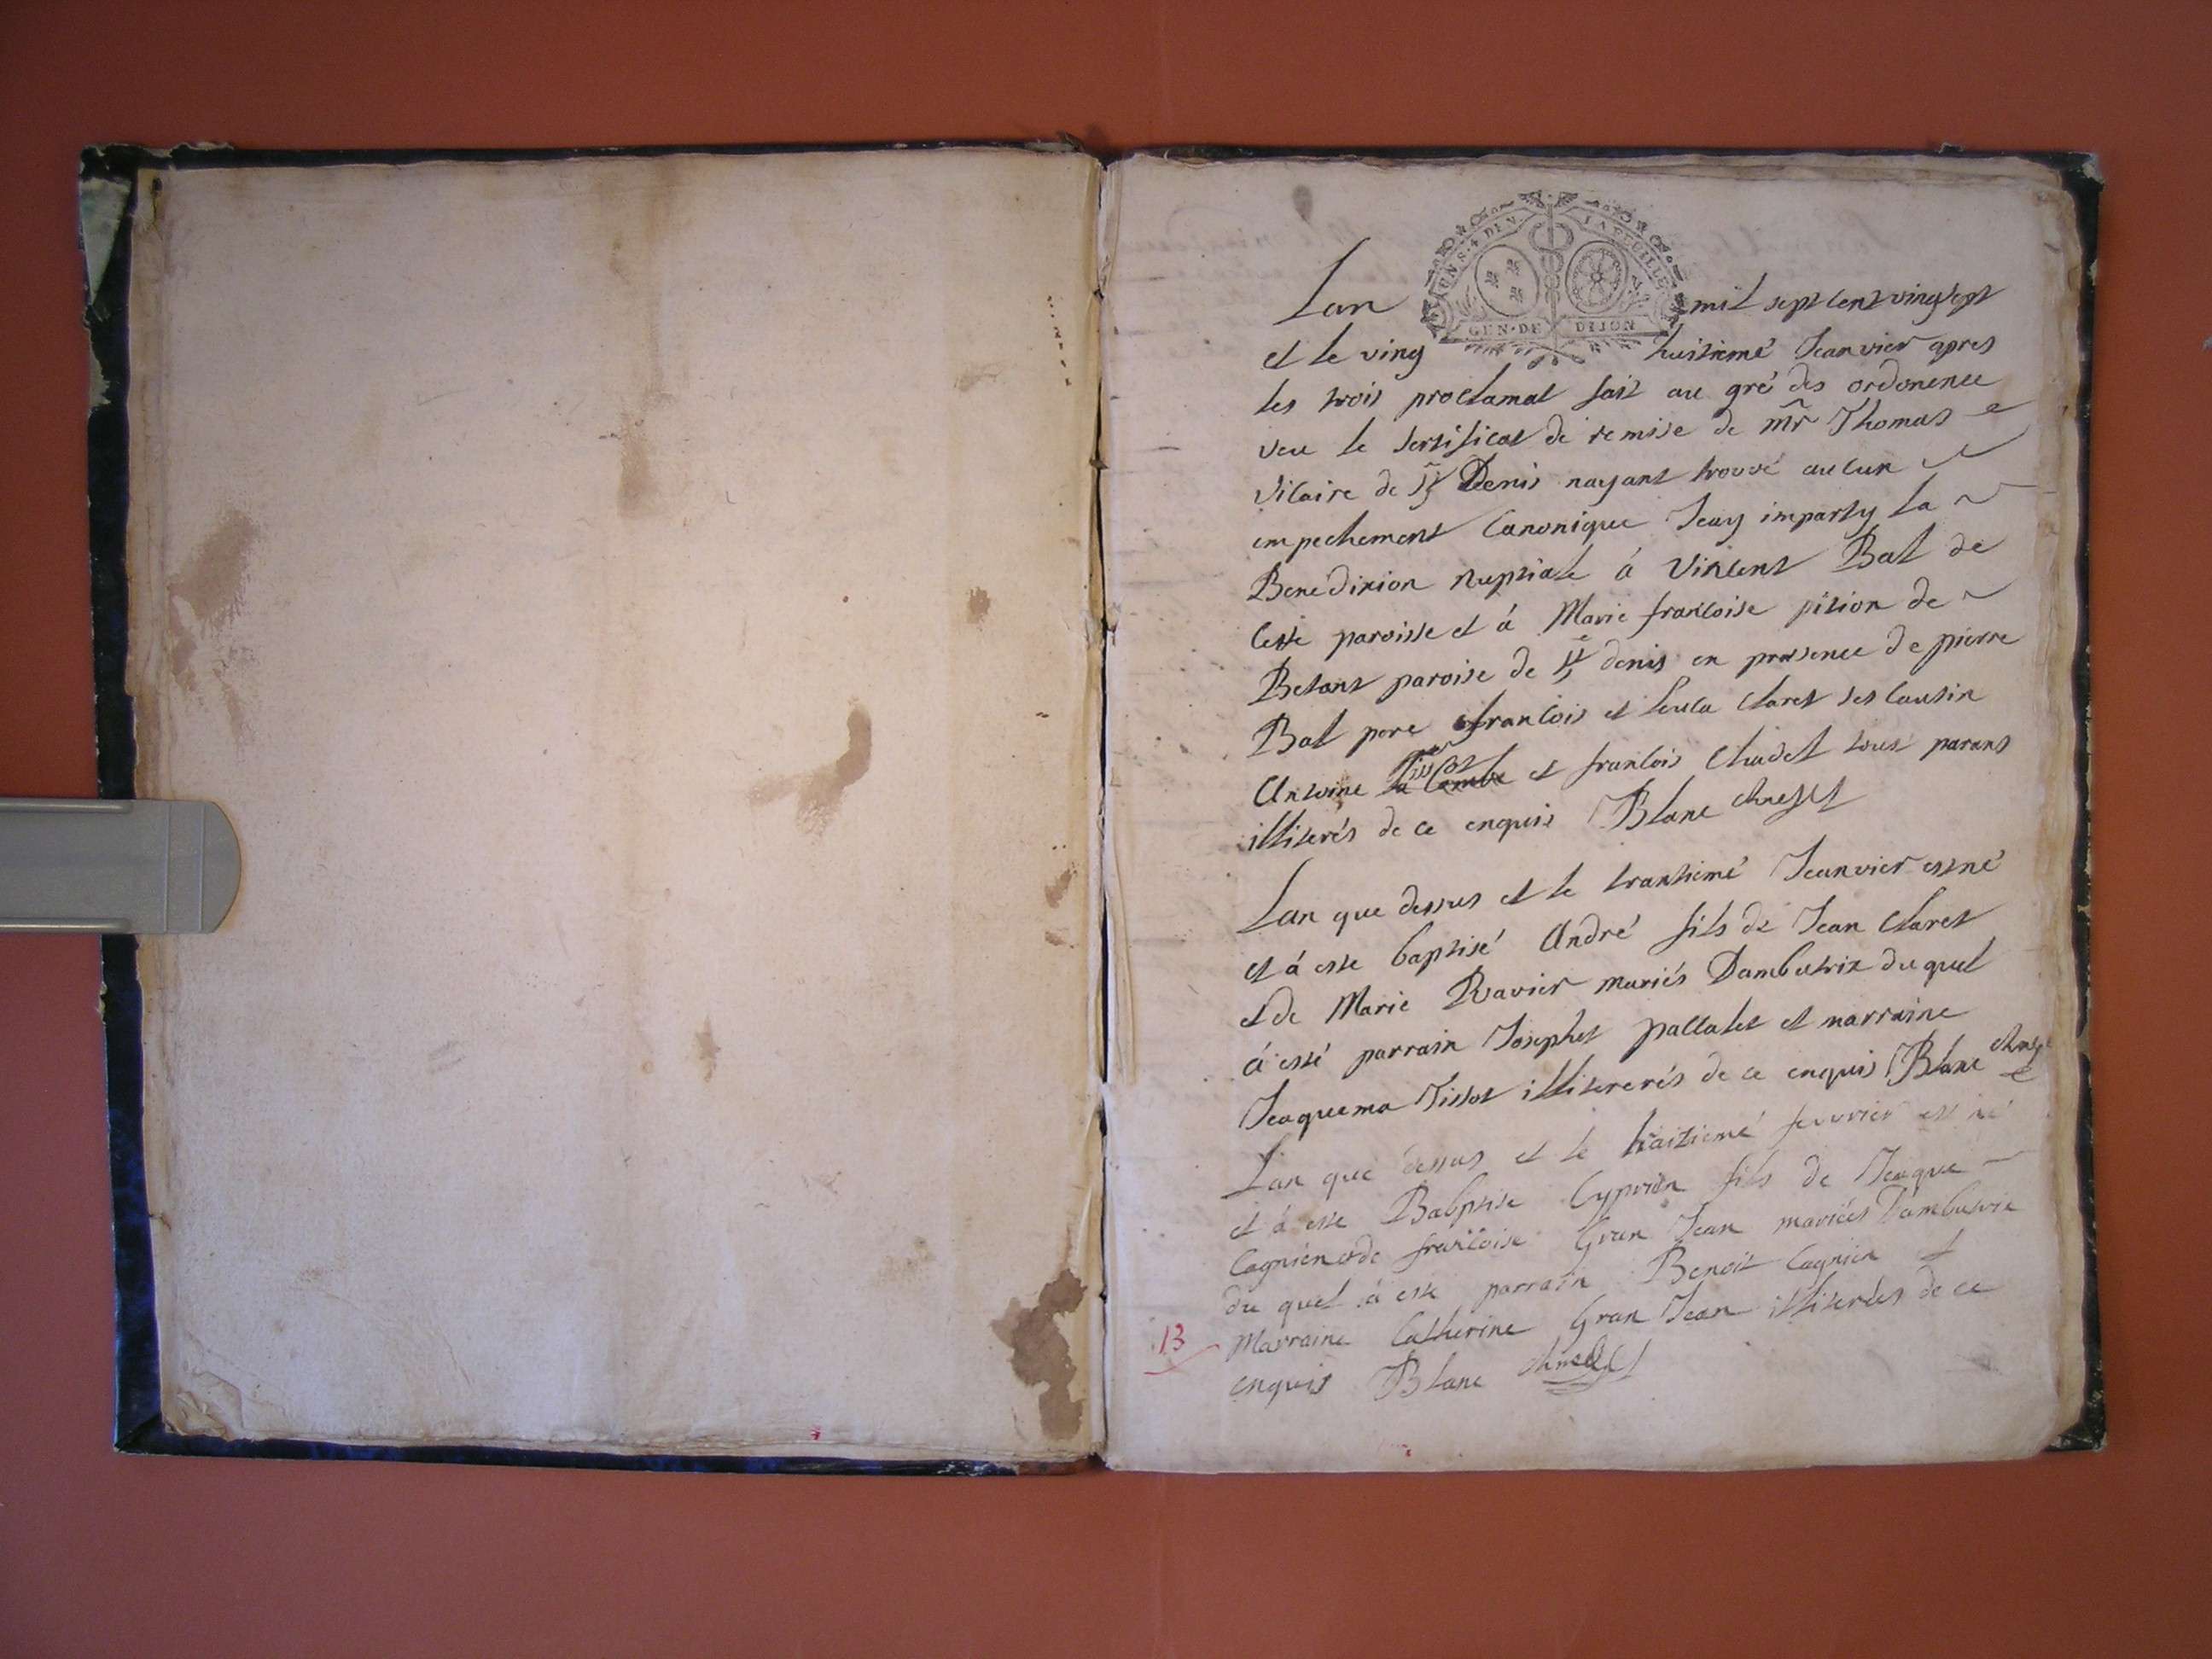 UN S. 4 DE V. LA FEUILLE
GEN. DE DIJON
Lan mil sept cent vingsept
et le ving huitieme Jeanvier apres
les trois proclamat fait au gré des ordonence
veu le sertificat de remise de mr Thomas
vicaire de St Denis nayant trouvé aucun
empechement Canonique Jeay imparty la
Benedixion nuptiale á Vincent Bal de
cette paroisse et á Marie francoise pition de
Betant paroise de St denis en presence de pierre
Bal pere francois et Claret ses Cousin
Antoine Tissot la Combe et francois Chudet tous parans
illiterés de ce enquis Blanc
Lan que dessus et le trantiemé Jeanvier est né
et á esté baptisé André fils de Jean Claret
et de Marie Ravier mariés Dambutrix du quel
á esté parrain Josephet pallatet et marraine
Jeaquema Tissot illitererés de ce enquis Blanc
Lan que dessus et le huitiemé feuvrier est né
et á este Babptise Cyprien fils de Jeaque
Cagnien et de francoise Gran Jean mariés Dambutrix
du quel á este parrain Benoit Cagnien et
13 Marraine Catherine Gran Jean illiterées de ce
enquis Blanc